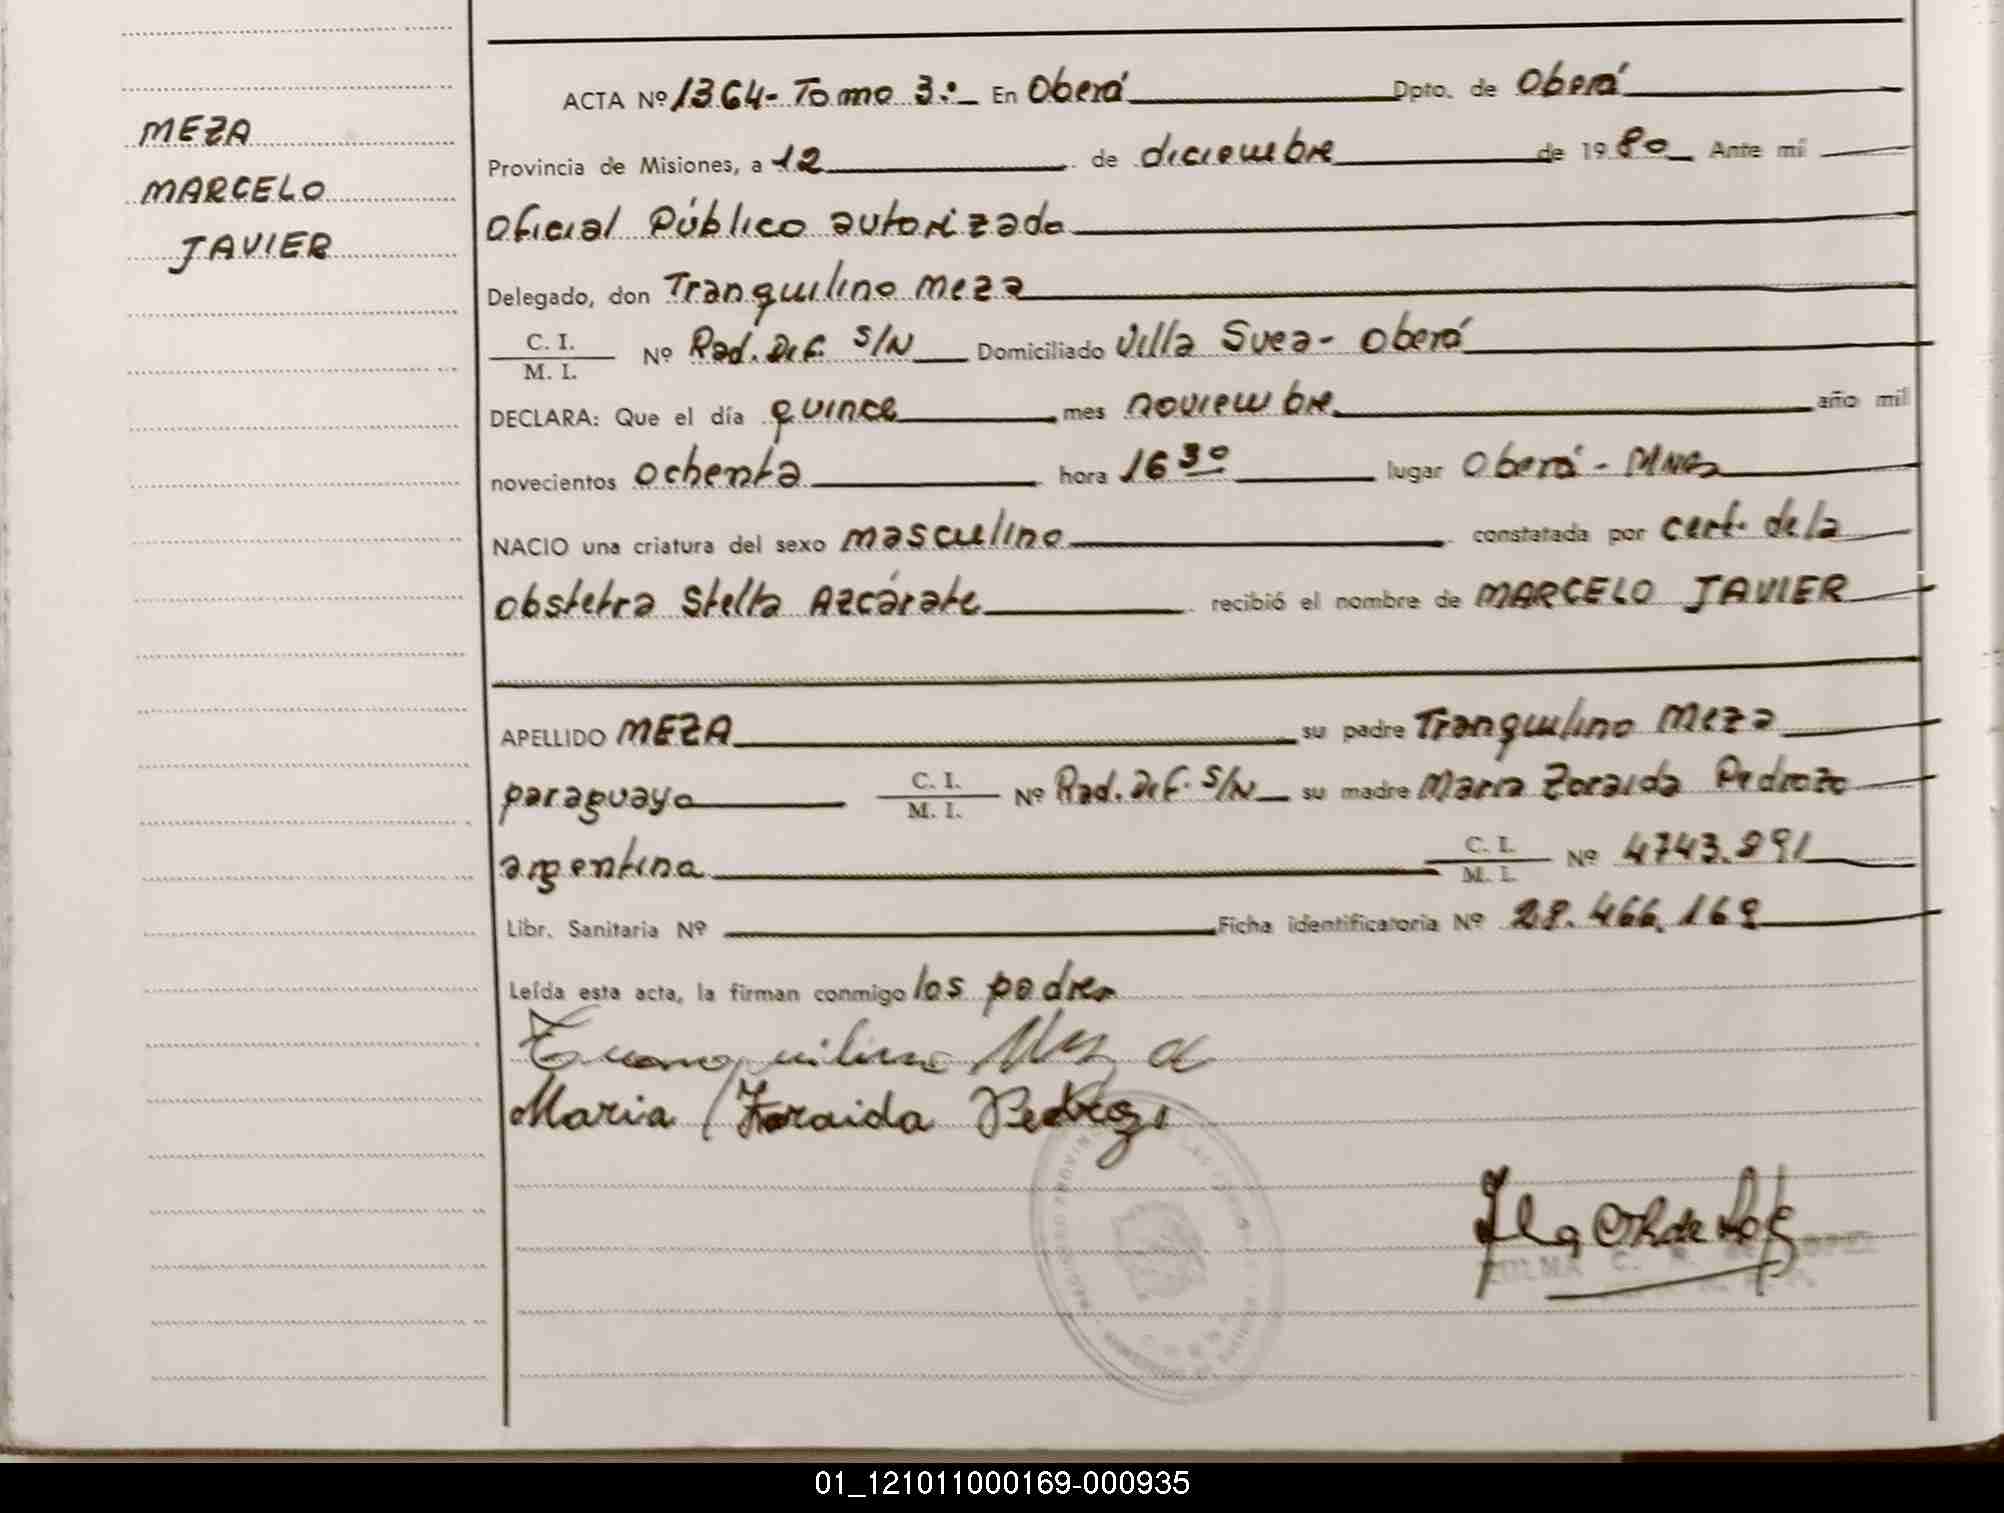 MEZA
MARCELO
JAVIER
ACTA Nº 1364- Tomo 3º En Oberá Dpto. de Oberá
Provincia de Misiones, a 12 de diciembre de 1980 Ante mí
Oficial Público autorizado
Delegado, don Tranquilino Meza
C. I.
M. I. Nº Rad. Def. S/N Domiciliado Villa Svea- Oberá
DECLARA: Que el día quince mes noviembre año mil
novecientos ochenta hora 16 30 lugar Oberá - Mnes
NACIO una criatura del sexo masculino constatada por cert. de la
obstetra Stella Azcárate recibió el nombre de MARCELO JAVIER
APELLIDO MEZA su padre Tranquilino Meza
paraguayo C. I.
M. I. Nº Rad. Def. S/N su madre María Zoraida Pedrozo
argentina C. I.
M. I. Nº 4743.891
Libr. Sanitaria Nº Ficha identificatoria Nº 28.466.169
Leída esta acta, la firman conmigo los padres
Tranquilino Meza
Maria Zoraida Pedrozo
ZULMA C.
01_121011000169-000935